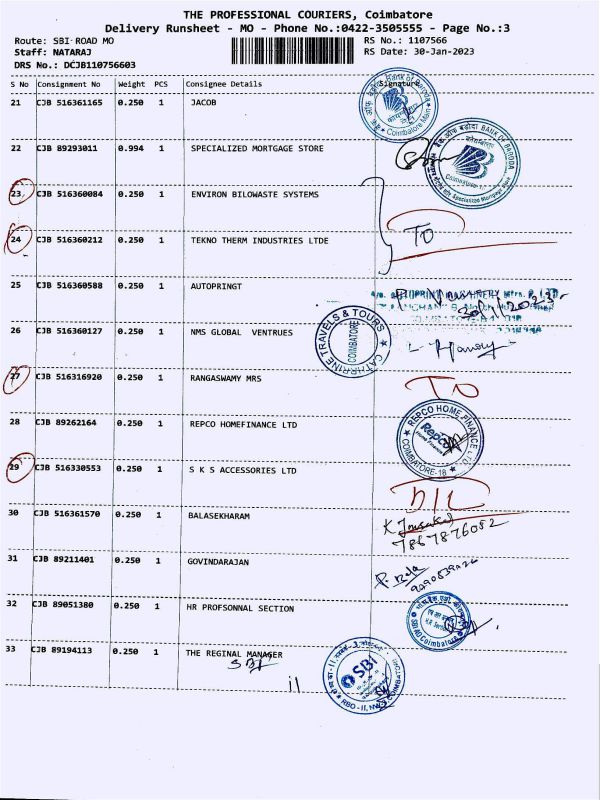 THE PROFESSIONAL COURIERS, Coimbatore
Delivery Runsheet - MO - Phone No.:0422-3505555 - Page No.:3
Route: SBI-ROAD MO RS No.: 1107566
Staff: NATARAJ RS Date: 30-Jan-2023
DRS No.: DCJB110756603
S No Consignment No Weight PCS Consignee Details Signature
21 CJB 516361165 0.250 1 JACOB
Bank of Baroda
Coimbatore Main
22 CJB 89293011 0.994 1 SPECIALIZED MORTGAGE STORE
बैंक ऑफ़ बड़ौदा BANK OF BARODA
Specialized Mortgage Store
23 CJB 516360084 0.250 1 ENVIRON BILOWASTE SYSTEMS
24 CJB 516360212 0.250 1 TEKNO THERM INDUSTRIES LTDE
TO
25 CJB 516360588 0.250 1 AUTOPRINGT
30/1/2023
26 CJB 516360127 0.250 1 NMS GLOBAL VENTRUES
CATHRINE TRAVELS & TOURS
COIMBATORE
27 CJB 516316920 0.250 1 RANGASWAMY MRS
TO
28 CJB 89262164 0.250 1 REPCO HOMEFINANCE LTD
REPCO HOME FINANCE LTD.
Repco
Home Finance
COIMBATORE-18
29 CJB 516330553 0.250 1 S K S ACCESSORIES LTD
D/L
30 CJB 516361570 0.250 1 BALASEKHARAM
7867876052
31 CJB 89211401 0.250 1 GOVINDARAJAN
P. Bala
32 CJB 89051380 0.250 1 HR PROFSONNAL SECTION
33 CJB 89194113 0.250 1 THE REGINAL MANAGER
SBI
SBI
RBO - II, NW COIMBATORE